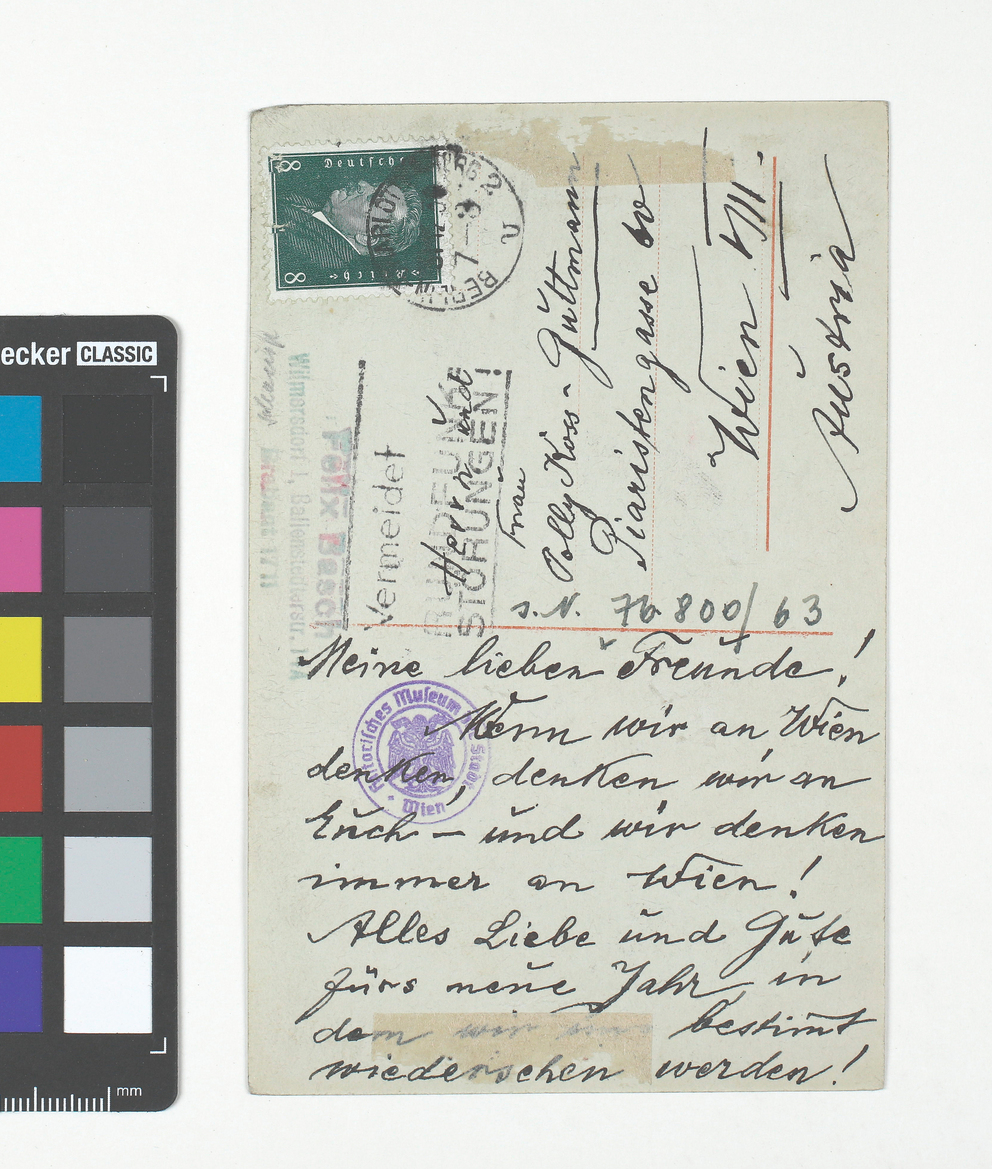 Meine lieben Freunde!
Wenn wir an Wien
denken, denken wir an
Euch – und wir denken
immer an Wien!
Alles Liebe und Gute
fürs neue Jahr, in
dem wir uns bestimt
wiedersehen werden!
s. N. 76 800/63
Herrn und
Frau
Polly Koss - Guttmann
Piaristengasse 60
Wien VIII
Austria
Vermeidet
RUNDFUNK
STÖRUNGEN!
Deutsches
Reich
8
8
BERLIN
2
n
Felix Basch
Historisches Museum Stadt
Wien
ecker CLASSIC
mm